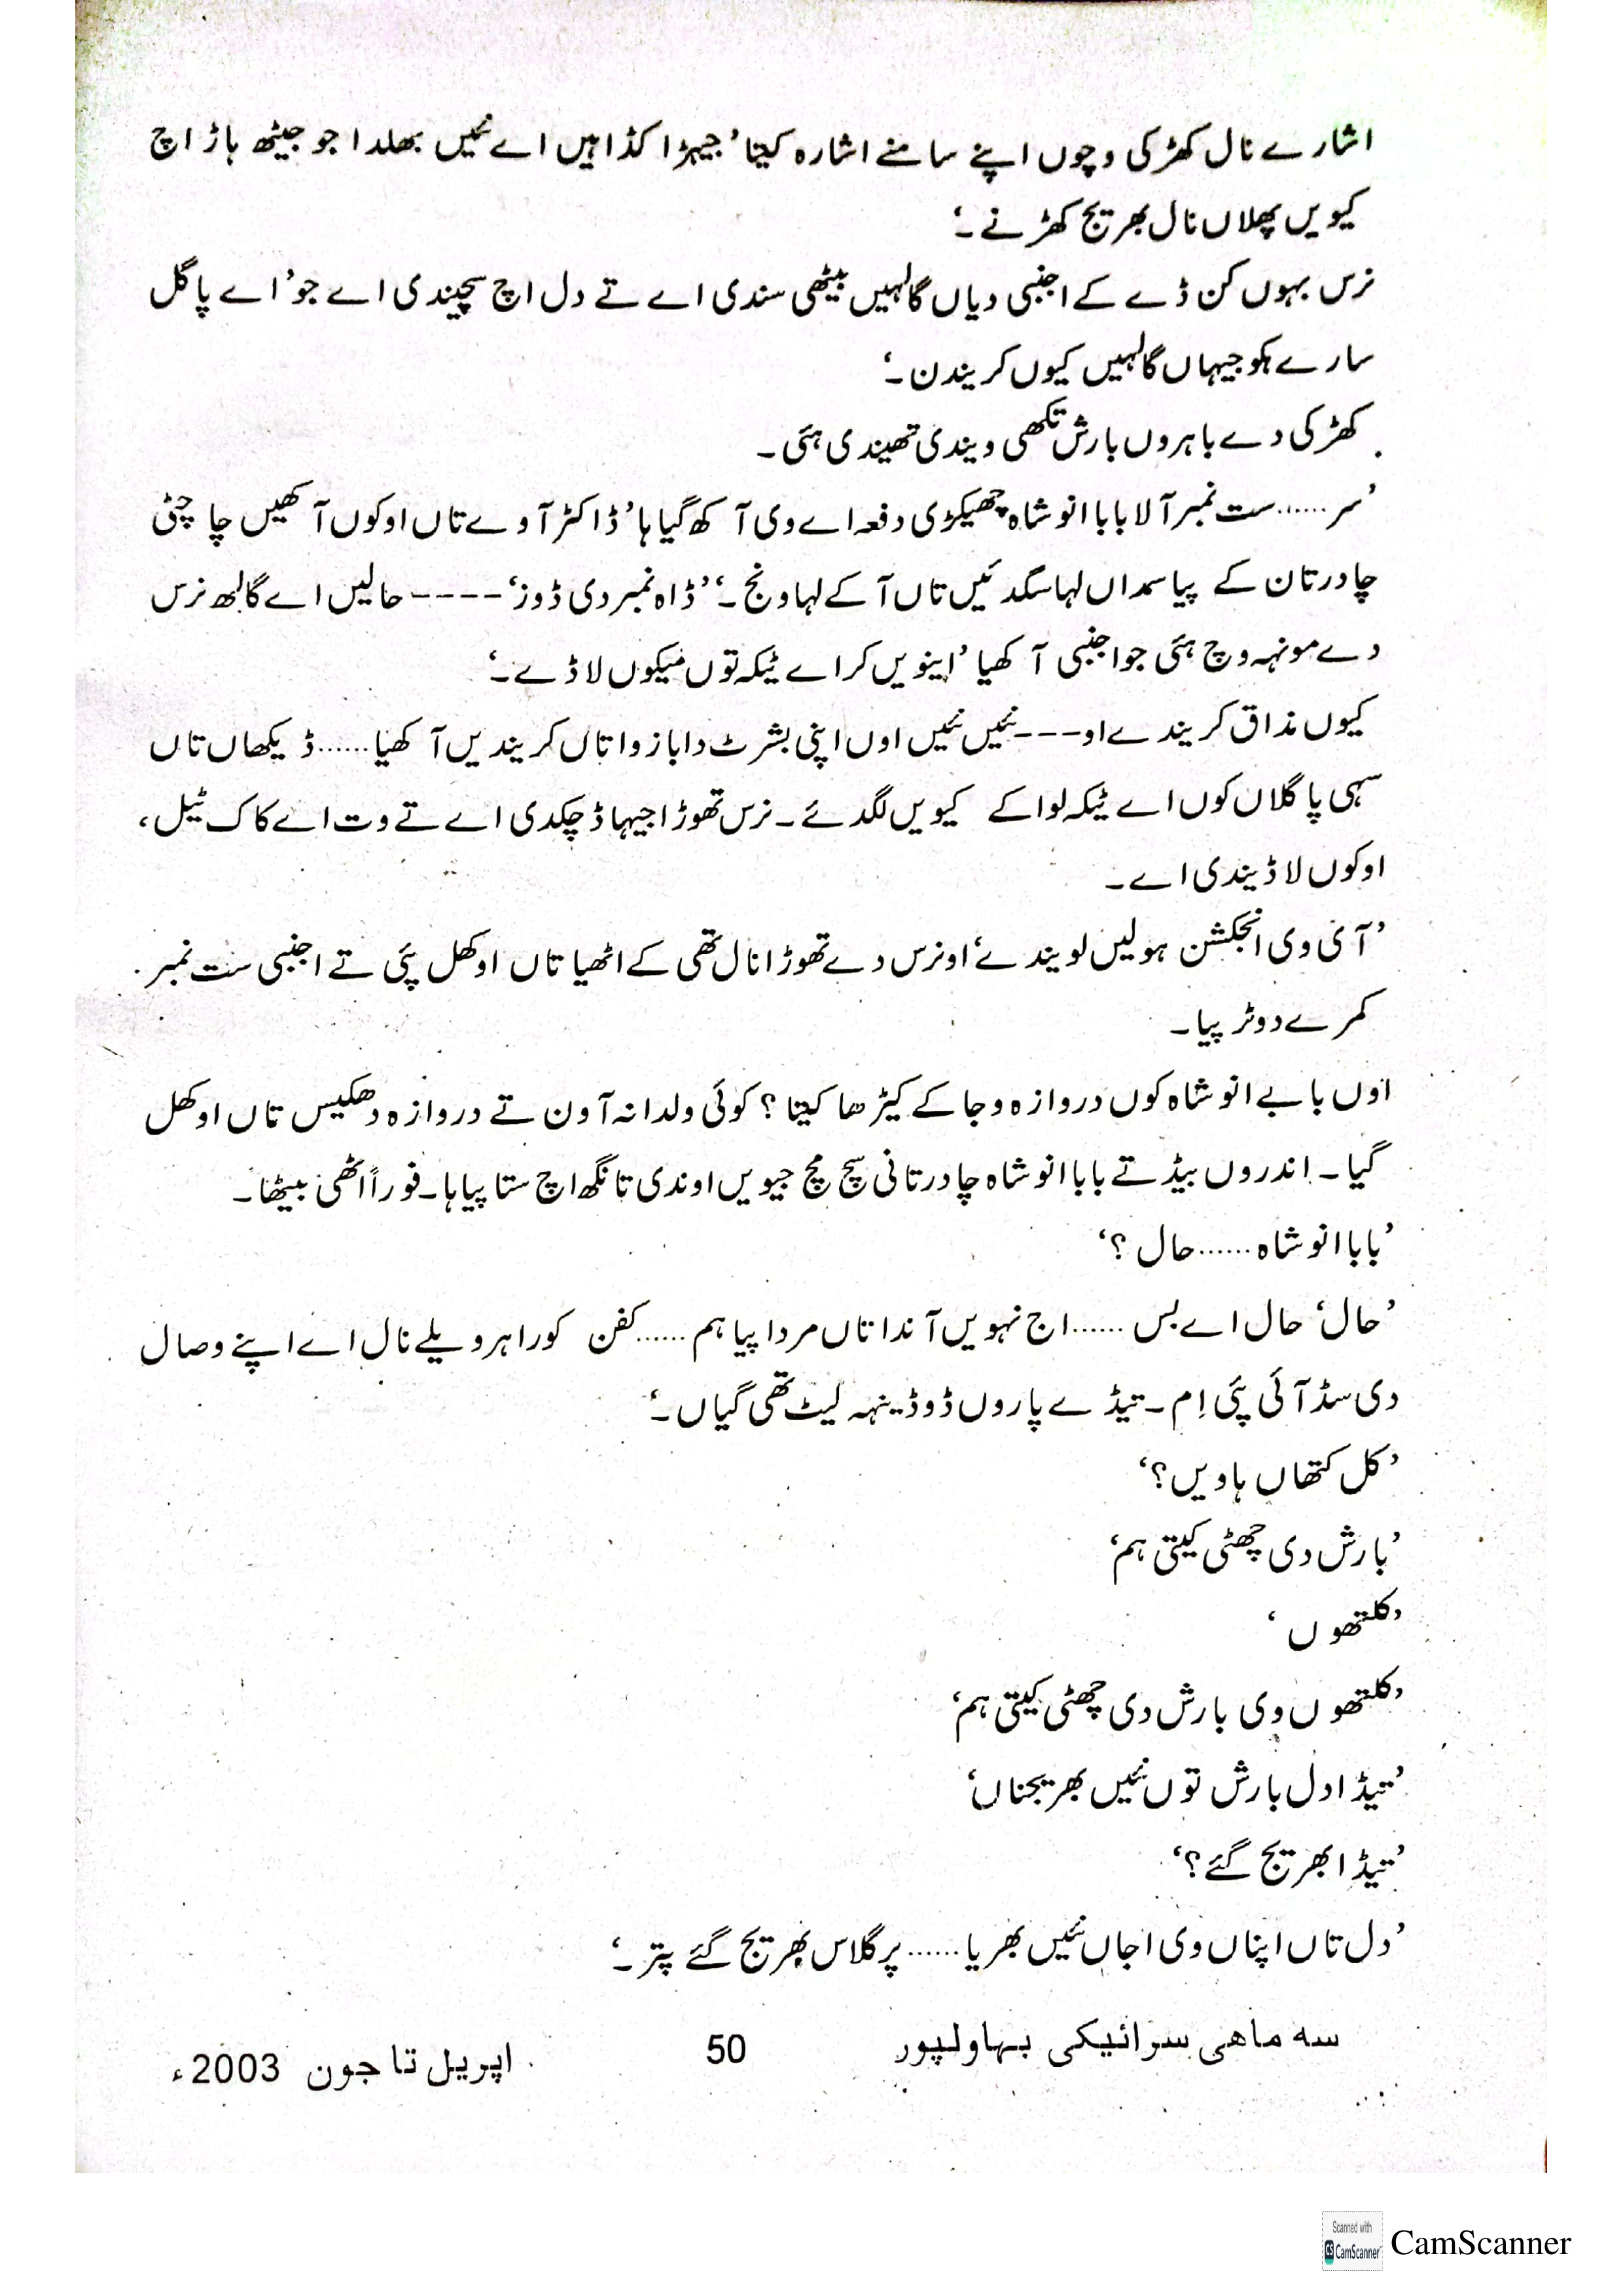 اشارے نال کھڑکی وچوں اپنے سامنے اشارہ کیتا’جیہڑا کڈاہیں اے نئیں بھلدا جو جیٹھ ہاڑ اچ
کیویں پھلاں نال بھریج کھڑنے۔‘
نرس بہوں کن ڈے کے اجنبی دیاں گالہیں بیٹھی سندی اے تے دل اچ سچیندی اے جو’اے پاگل
سارے ہکو جیہاں گالہیں کیوں کریندن۔‘
کھڑکی دے باہروں بارش تکھی ویندی تھیندی ہئی۔
’سر......ست نمبر آلا بابا انو شاہ چھیکڑی دفعہ اے وی آکھ گیا ہا’ڈاکٹر آوے تاں اوکوں آکھیں چا چٹی
چادر تان کے پیا سمداں لہا سگدئیں تاں آ کے لہا ونج۔‘’ڈاہ نمبر دی ڈوز‘----حالیں اے گالھ نرس
دے مونہہ وچ ہئی جو اجنبی آکھیا ’اینویں کر اے ٹیکہ توں میکوں لا ڈے۔‘
کیوں مذاق کریندے او---نئیں نئیں اوں اپنی بشرٹ دا بازو اتاں کریندیں آکھیا......ڈیکھاں تاں
سہی پاگلاں کوں اے ٹیکہ لوا کے کیویں لگدئے۔نرس تھوڑا جیہا ڈچکدی اے تے وت اے کاک ٹیل،
اوکوں لا ڈیندی اے۔
’آئی وی انجکشن ہولیں لویندے‘او نرس دے تھوڑا نال تھی کے اٹھیا تاں او کھل پئی تے اجنبی ست نمبر
کمرے دو ٹر پیا۔
اوں بابے انو شاہ کوں دروازہ وجا کے کیڑھا کیتا؟ کوئی ولدا نہ آون تے دروازہ دھکیس تاں او کھل
گیا۔ اندروں بیڈ تے بابا انو شاہ چادر تانی سچ مچ جیویں اوندی تانگھ اچ ستا پیا ہا۔فوراً اٹھی بیٹھا۔
’بابا انو شاہ......حال ؟‘
’حال‘ حال اے بس ......اج نہویں آندا تاں مردا پیا ہم ......کفن کورا ہر ویلے نال اے اپنے وصال
دی سڈ آئی پئی اِم۔تیڈے پاروں ڈو ڈینہہ لیٹ تھی گیاں۔‘
’کل کتھاں ہاویں؟‘
’بارش دی چھٹی کیتی ہم‘
’کلتھوں ‘
’کلتھوں وی بارش دی چھٹی کیتی ہم‘
’تیڈا دل بارش توں نئیں بھریجناں‘
’تیڈا بھریج گئے؟‘
’دل تاں اپناں وی اجاں نئیں بھریا......پر گلاس بھریج گئے پتر۔‘
سه ماهی سرائیکی بہاولپور 50 اپریل تا جون 2003ء
Scanned with
CS CamScanner CamScanner